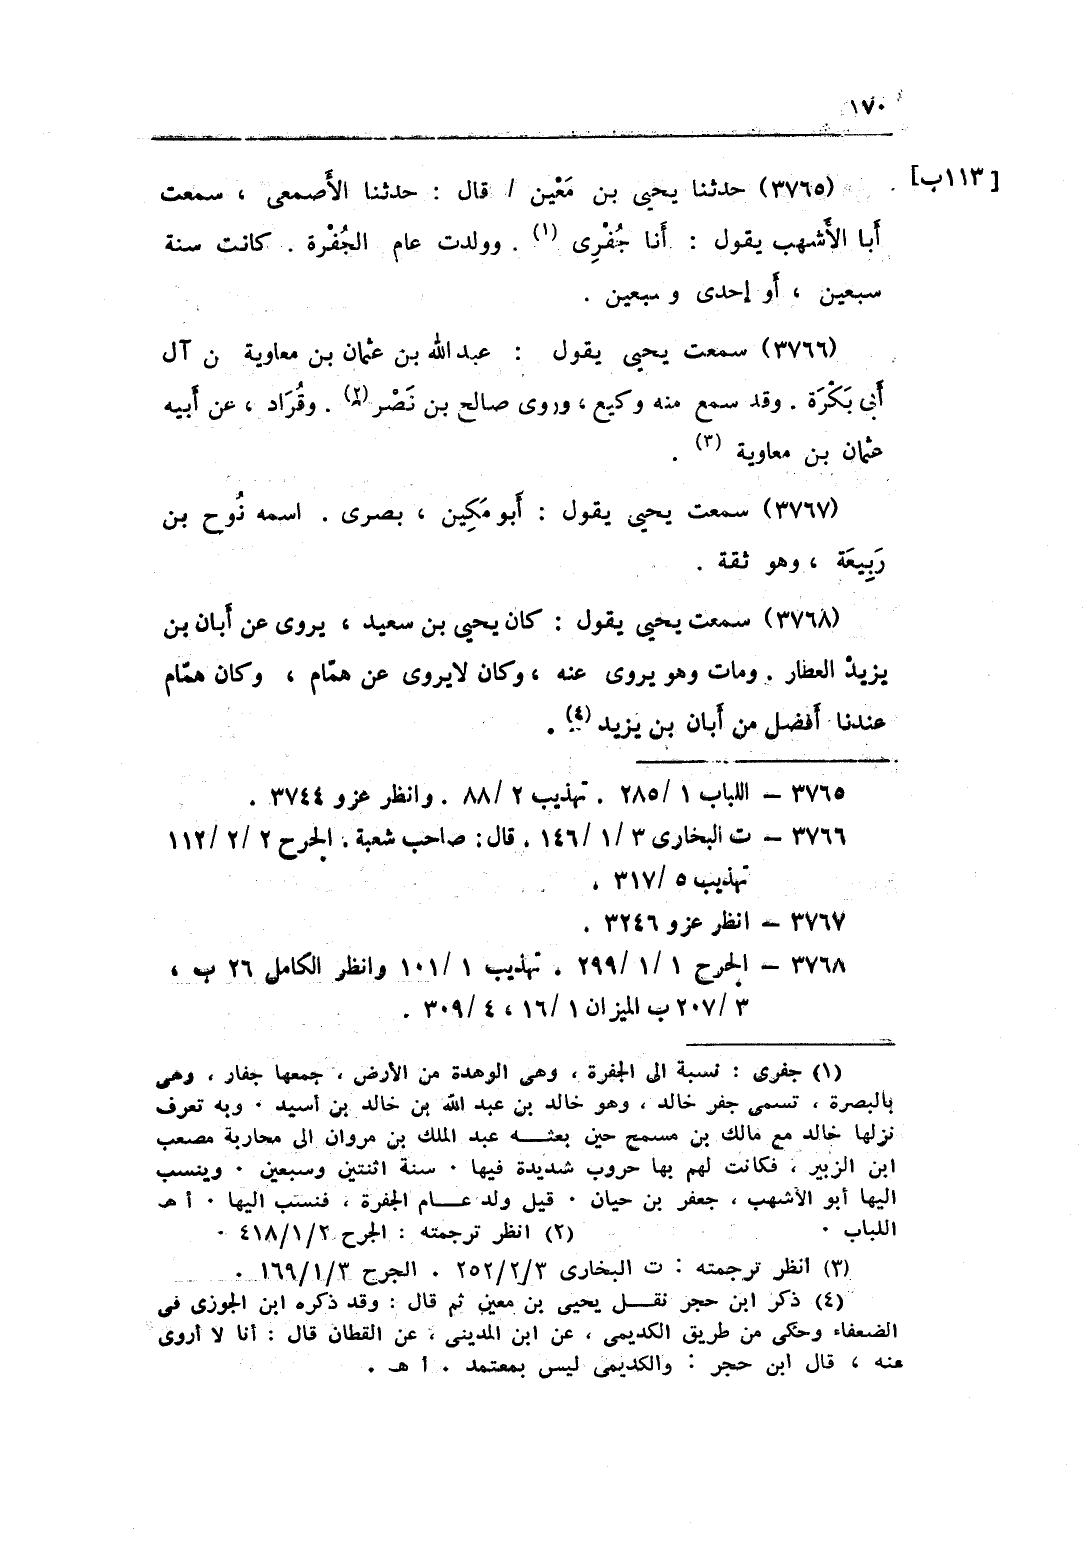 ١٧٠
[١١٣ب]
(٣٧٦٥) حدثنا يحيى بن مَعْين / قال : حدثنا الأَصمعى ، سمعت
أَبا الأَشهب يقول : أَنا جُفْرِى (١) . وولدت عام الجُفْرة . كانت سنة
سبعين ، أَو إحدى وسبعين .
(٣٧٦٦) سمعت يحيى يقول : عبد الله بن عثمان بن معاوية ن آل
أَبى بَكْرَة . وقد سمع منه وكيع ، وروى صالح بن نَصْر (٢) . وقُرَاد ، عن أَبيه
عثمان بن معاوية (٣) .
(٣٧٦٧) سمعت يحيى يقول : أَبو مَكِين ، بصرى . اسمه نُوح بن
رَبِيعَة ، وهو ثقة .
(٣٧٦٨) سمعت يحيى يقول : كان يحيى بن سعيد ، يروى عن أَبان بن
يزيد العطار . ومات وهو يروى عنه ، وكان لايروى عن همّام ، وكان همّام
عندنا أَفضل من أَبان بن يزيد (٤) .
٣٧٦٥ – اللباب ١ /٢٨٥ . تهذيب ٢ /٨٨ . وانظر عزو ٣٧٤٤ .
٣٧٦٦ – ت البخارى ٣ /١ /١٤٦ . قال : صاحب شعبة . الجرح ٢ /٢ /١١٢
تهذيب ٥ /٣١٧ .
٣٧٦٧ – انظر عزو ٣٢٤٦ .
٣٧٦٨ – الجرح ١ /١ /٢٩٩ . تهذيب ١ /١٠١ وانظر الكامل ٢٦ ب ،
٣ /٢٠٧ ب الميزان ١ /١٦ ، ٤ /٣٠٩ .
(١) جفرى : نسبة الى الجفرة ، وهى الوهدة من الأرض ، جمعها جفار ، وهى
بالبصرة ، تسمى جفر خالد ، وهو خالد بن عبد الله بن خالد بن أسيد ٠ وبه تعرف
نزلها خالد مع مالك بن مسمح حين بعثــه عبد الملك بن مروان الى محاربة مصعب
ابن الزبير ، فكانت لهم بها حروب شديدة فيها ٠ سنة اثنتين وسبعين ٠ وينسب
اليها أبو الأشهب ، جعفر بن حيان ٠ قيل ولد عــام الجفرة ، فنسب اليها ٠ أ هـ
اللباب ٠ (٢) انظر ترجمته : الجرح ٤١٨/١/٢ ٠
(٣) انظر ترجمته : ت البخارى ٢٥٢/٢/٣ . الجرح ١٦٩/١/٣ .
(٤) ذكر ابن حجر نقــل يحيى بن معين ثم قال : وقد ذكره ابن الجوزى فى
الضعفاء وحكى من طريق الكديمى ، عن ابن المدينى ، عن القطان قال : أنا لا أروى
عنه ، قال ابن حجر : والكديمى ليس بمعتمد . أ هـ .